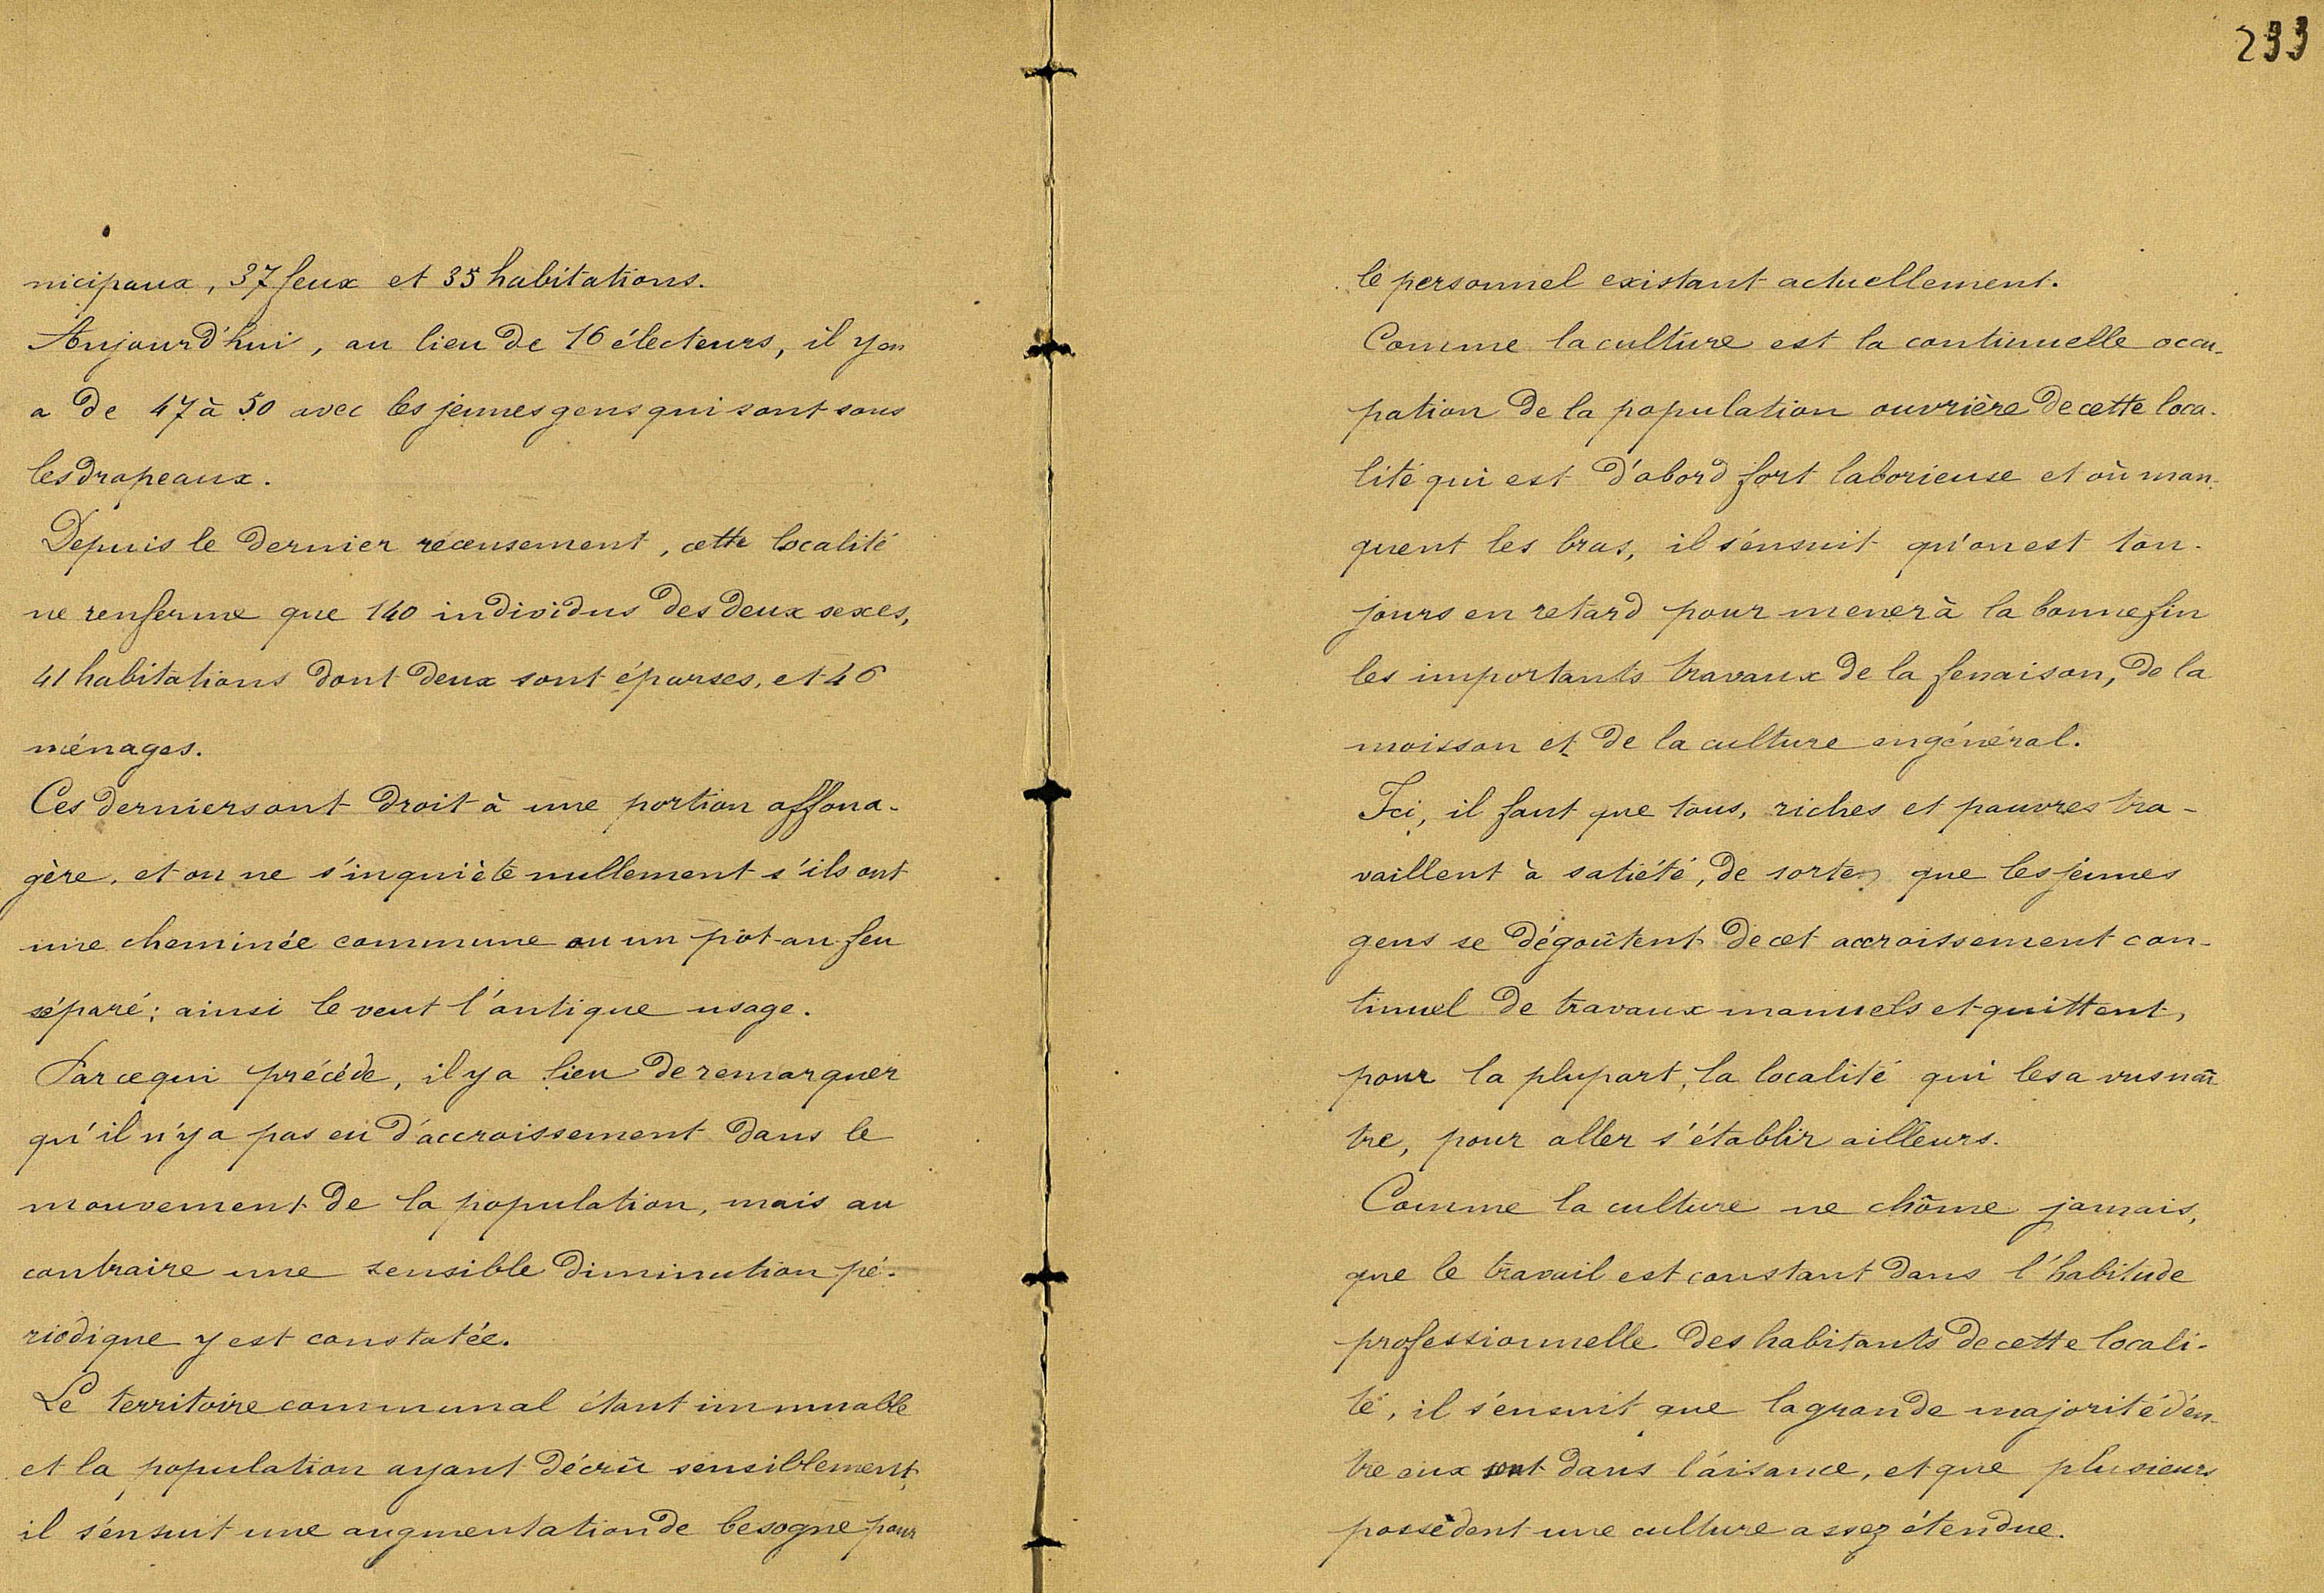 nicipaux, 37 feux et 35 habitations.
Aujourd'hui, au lieu de 16 électeurs, il y en
a de 47 à 50 avec les jeunes gens qui sont sous
les drapeaux.
Depuis le dernier recensement, cette localité
ne renferme que 140 individus des deux sexes,
41 habitations dont deux sont éparses, et 46
ménages.
Ces derniers ont droit à une portion affoua-
gère, et on ne s'inquiète nullement s'ils ont
une cheminée commune ou un pôt-au-feu
séparé; ainsi le veut l'antique usage.
Par ce qui précéde, il y a lieu de remarquer
qu'il n'y a pas eu d'accroissement dans le
mouvement de la population, mais au
contraire une sensible diminution pé-
riodique y est constatée.
Le territoire communal étant immuable
et la population ayant décrû sensiblement,
il s'ensuit une augmentation de besogne pour
233
le personnel existant actuellement.
Comme la culture est la continuelle occu-
pation de la population ouvrière de cette loca-
lité qui est d'abord fort laborieuse et où man-
quent les bras, il s'ensuit qu'on est tou-
jours en retard pour mener à la bonne fin
les importants travaux de la fenaison, de la
moisson et de la culture en général.
Ici, il faut que tous, riches et pauvres tra-
vaillent à satiété, de sorte que les jeunes
gens se dégoûtent de cet accroissement con-
tinuel de travaux manuels et quittent,
pour la plupart, la localité qui les a vus naî
tre, pour aller s'établir ailleurs.
Comme la culture ne chôme jamais,
que le travail est constant dans l'habitude
professionnelle des habitants de cette locali-
té, il s'ensuit que la grande majorité d'en-
tre eux sont dans l'aisance, et que plusieurs
possèdent une culture assez étendue.